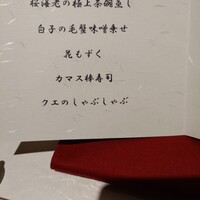 桜海老の極上茶碗蒸し
白子の毛蟹味噌乗せ
花もずく
カマス棒寿司
クエのしゃぶしゃぶ